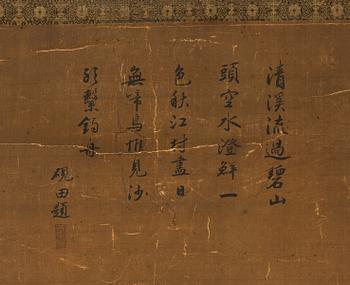 清溪流過碧山
頭空水澄鮮一
色秋江村盡日
無啼鳥惟見沙
邨繫釣舟
硯田題